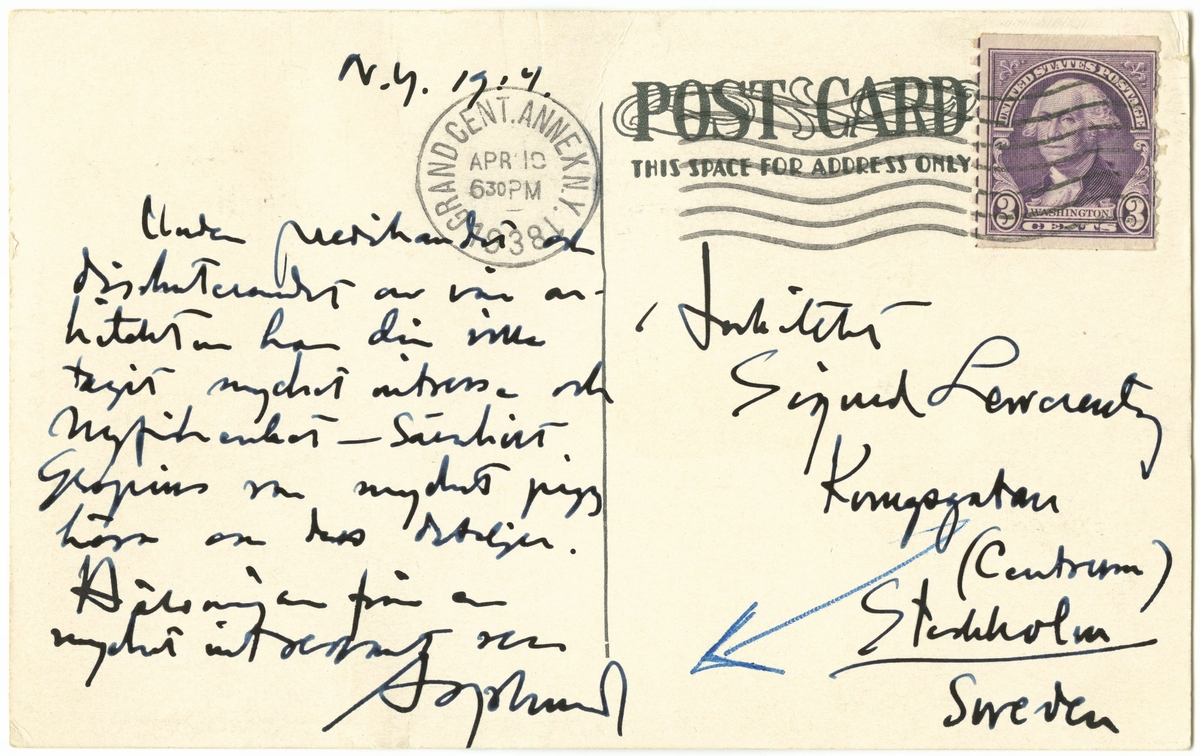 N.Y. 19.4.
Under presshandist och
diskuterandet av vår ar-
kitektur har din
tagit mycket intresse och
Nyfikenhet — Särskilt
Gropius var mycket pigg
höra om dess detaljer.
Hälsningar från en
mycket intressant resa
Asplund
GRAND CENT. ANNEX N.Y.
APR 10
6 30 PM
1938
POST CARD
THIS SPACE FOR ADDRESS ONLY
UNITED STATES POSTAGE
3 WASHINGTON 3
CENTS
Arkitekt
Sigurd Lewerentz
Kungsgatan
(Centrum)
Stockholm
Sweden